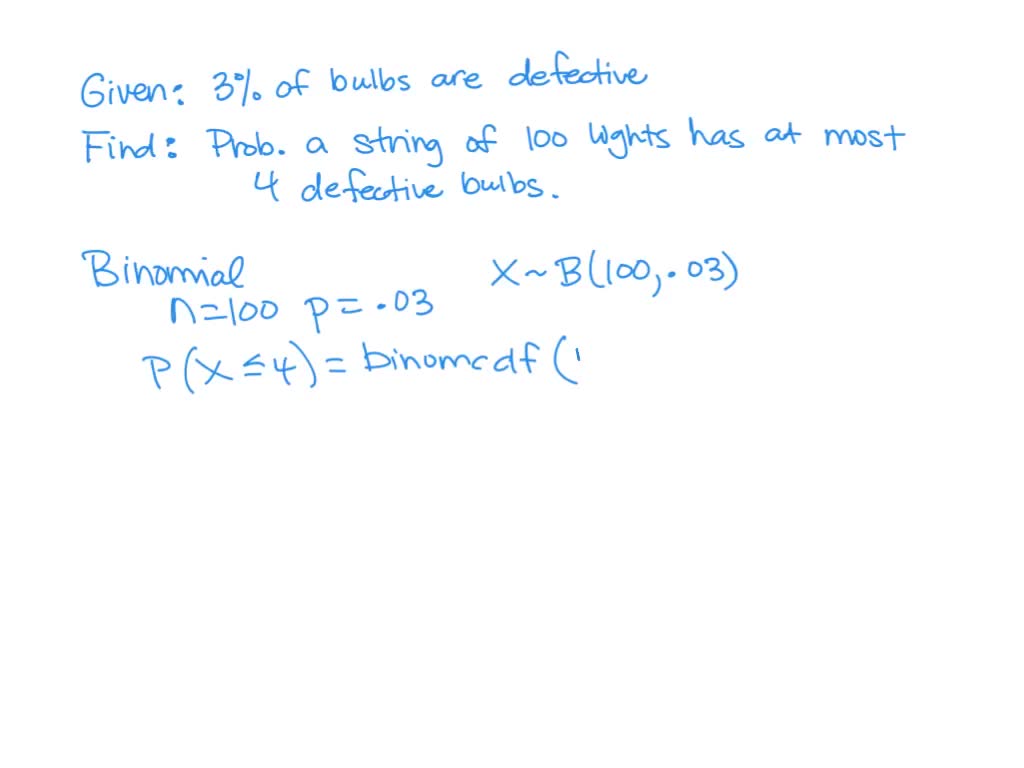 Given: 3% of bulbs are defective
Find: Prob. a string of 100 lights has at most
4 defective bulbs.
Binomial X~B(100,.03)
n=100 p=.03
P(X≤4)= binomcdf (